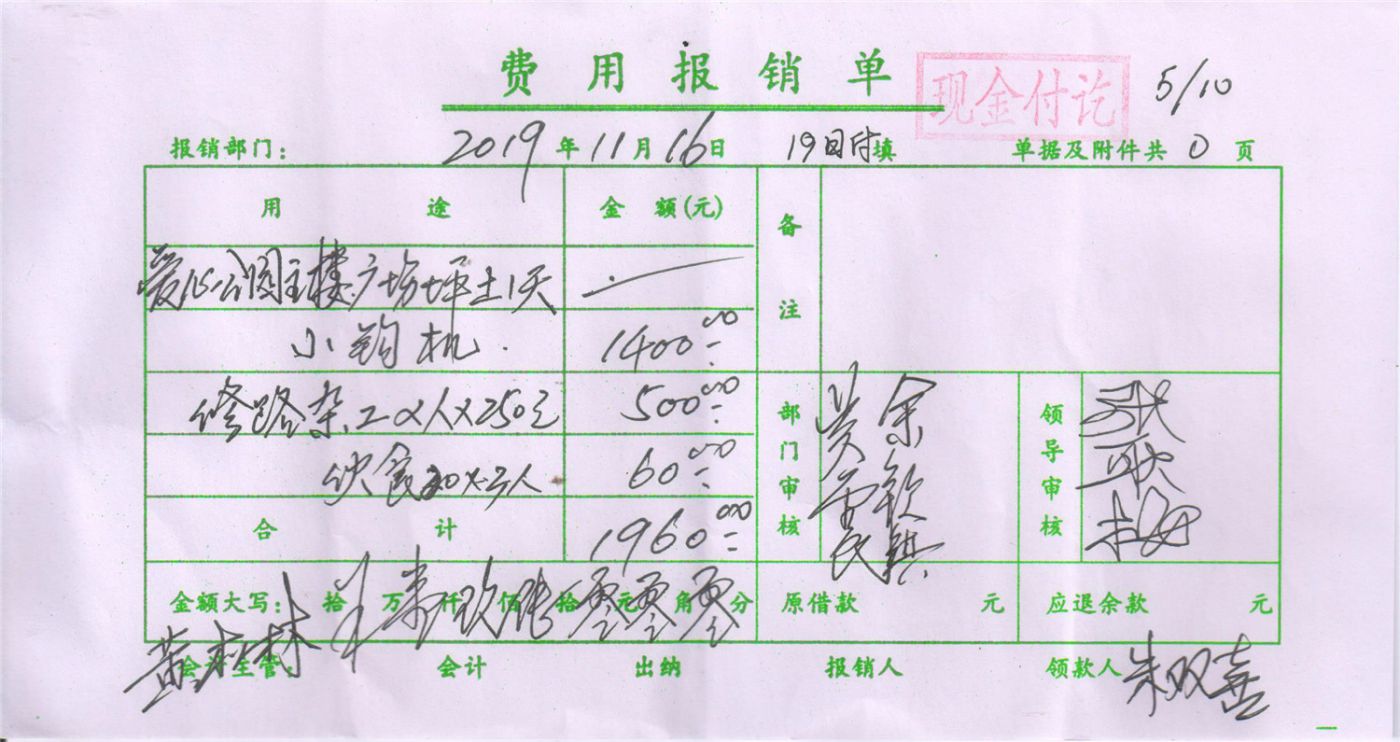 费用报销单
现金付讫
5/10
报销部门： 2019年11月16日 19日付填 单据及附件共 0 页
用途 金额(元) 备注
爱心公园主楼广场坪土1天
小钩机 1400.00
修路杂工2人×250元 500.00
饮食20×3人 60.00
合计 1960.00
部门审核 余钦镇
领导审核 张耿梅
金额大写： 拾 万 壹 仟 玖 佰 陆 拾 零 元 零 角 零 分 原借款 元 应退余款 元
会计主管： 黄 林 会计 出纳 报销人 领款人 朱双喜